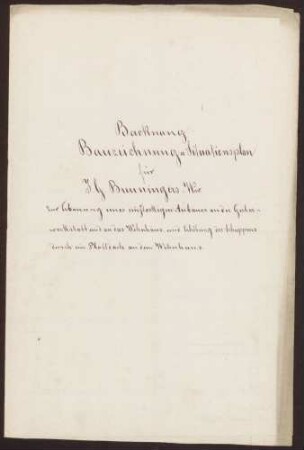 Backnang
Bauzeichnung u. Situationsplan
für
J G Bunningers Wtr
Zur Erbauung eines einstockigen Anbaues an die Gerber-
werkstatt und an das Wohnhaus und Erhöhung des Schuppens
durch ein Pultdach an dem Wohnhaus.